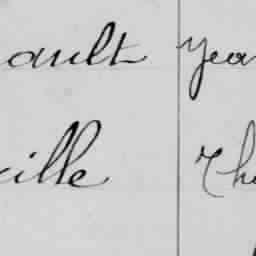 ault yea
ille Thé